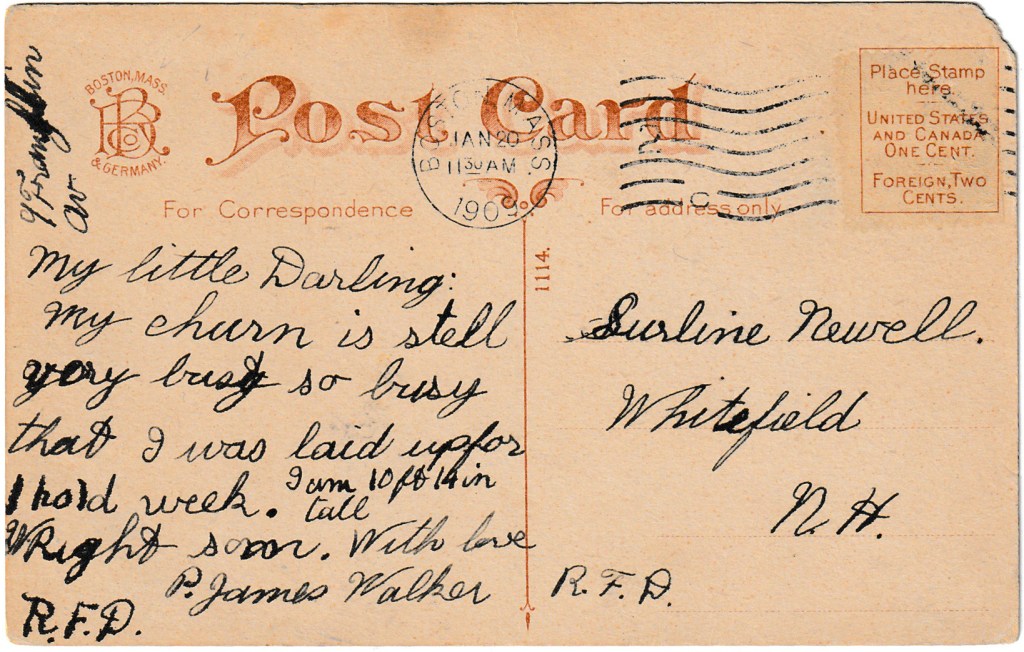 BOSTON, MASS.
BRCo
& GERMANY.
Post Card
BOSTON, MASS.
JAN 20
11 30 AM
1909
2
C
Place Stamp
here
UNITED STATES
AND CANADA
ONE CENT.
FOREIGN, TWO
CENTS.
For Correspondence
For address only
1114.
9 Franklin
av
My little Darling:
My churn is stell
very busy so busy
that I was laid up for
1 hold week. I am 10 ft 14 in
tall
WRight soon. With love
P. James Walker
R.F.D.
Surline Newell.
Whitefield
N.H.
R.F.D.